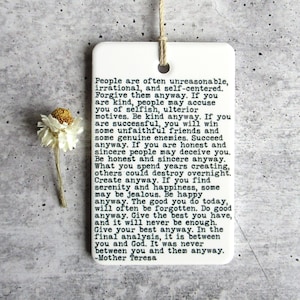 People are often unreasonable,
irrational, and self-centered.
Forgive them anyway. If you
are kind, people may accuse
you of selfish, ulterior
motives. Be kind anyway. If you
are successful, you will win
some unfaithful friends and
some genuine enemies. Succeed
anyway. If you are honest and
sincere people may deceive you.
Be honest and sincere anyway.
What you spend years creating,
others could destroy overnight.
Create anyway. If you find
serenity and happiness, some
may be jealous. Be happy
anyway. The good you do today,
will often be forgotten. Do good
anyway. Give the best you have,
and it will never be enough.
Give your best anyway. In the
final analysis, it is between
you and God. It was never
between you and them anyway.
-Mother Teresa